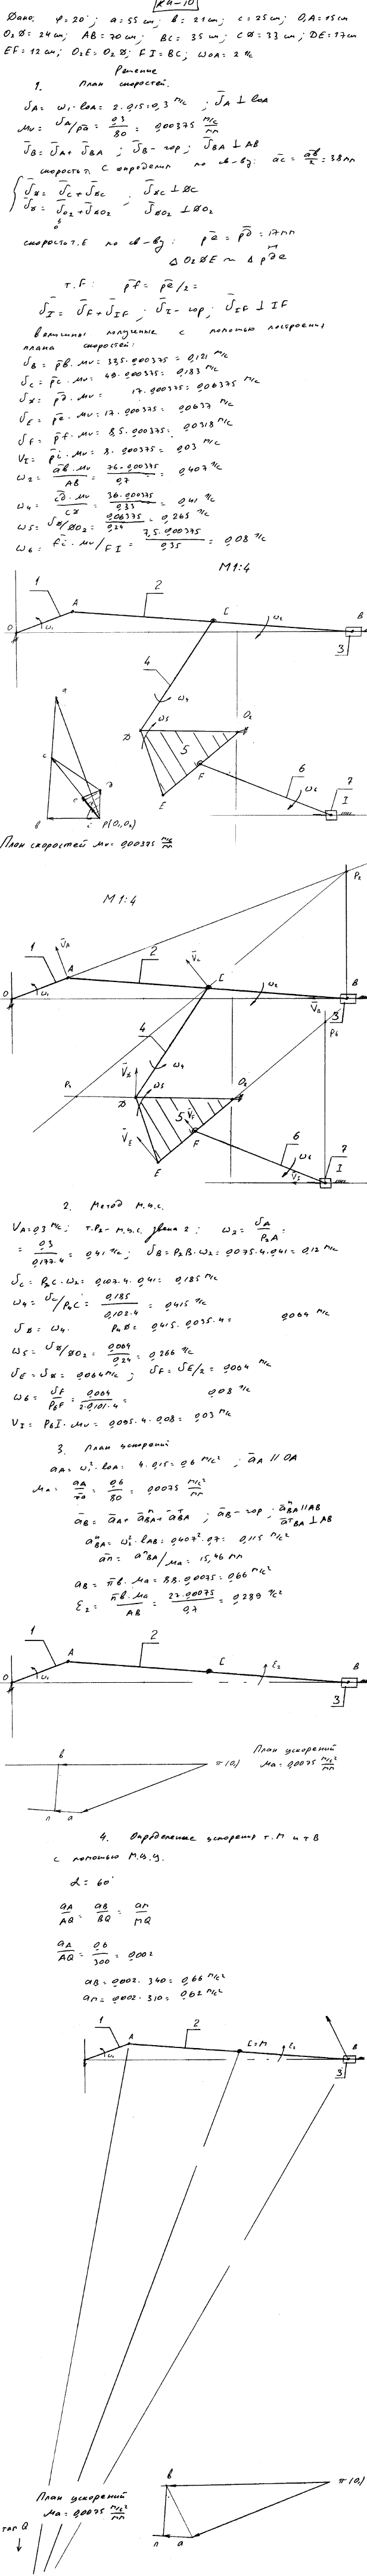 КМ-10
Дано: φ=20°; a=55 см; b=21 см; c=25 см; O₁A=15 см
O₂D=24 см; AB=70 см; BC=35 см; CD=33 см; DE=17 см
EF=12 см; O₂E=O₂D; FI=BC; ω₀ₐ=2 ¹/c
Решение
1. План скоростей.
υA= ω₁·l₀ₐ= 2·0,15=0,3 м/с; υA ⊥ l₀ₐ
μv= υA/pa= 0,3/80 = 0,00375 (м/с)/мм
υB= υA+ υBA; υB- гор; υBA ⊥ AB
скорость т. C определим по св-ву: ac= ab/2 = 38 мм
υD= υC+ υDC; υDC ⊥ DC
υD= υO2+ υDO2; υDO2 ⊥ DO₂
0
скорость т. E по св-ву: pe= pd= 17 мм
Δ O₂DE ~ Δ pde
т. F: pf= pe/2=
υI= υF+ υIF; υI- гор; υIF ⊥ IF
величины полученные с помощью построения
плана скоростей:
υB= pb·μv= 32,5·0,00375= 0,121 м/с
υC= pc·μv= 49·0,00375= 0,183 м/с
υD= pd·μv= 17·0,00375= 0,06375 м/с
υE= pe·μv= 17·0,00375= 0,0637 м/с
υF= pf·μv= 8,5·0,00375= 0,0318 м/с
VI= pi·μv= 8·0,00375= 0,03 м/с
ω₂= ab·μv/AB = 76·0,00375/0,7 = 0,407 ¹/c
ω₄= cd·μv/CD = 36·0,00375/0,33 = 0,41 ¹/c
ω₅= υD/DO₂= 0,06375/0,24 = 0,265 ¹/c
ω₆= fi·μv/FI = 7,5·0,00375/0,35 = 0,08 ¹/c
M1:4
1
A
2
C
B
O
ω₁
ω₂
3
4
ω₄
D
ω₅
O₂
5
F
E
6
7
I
ω₆
a
c
d
b
i
P(O₁,O₂)
План скоростей μv= 0,00375 (м/с)/мм
P₂
M1:4
1
VA
A
2
VC
C
B
O
ω₁
ω₂
VB
3
P₆
4
ω₄
VD
P₄
D
ω₅
O₂
5
VF
F
VE
E
6
7
I
ω₆
VI
2. Метод м.ц.с.
VA=0,3 м/с; т.P₂- м.ц.с. звена 2; ω₂= υA/P₂A =
= 0,3/(0,177·4) = 0,41 ¹/c; υB= P₂B·ω₂= 0,075·4·0,41= 0,12 м/с
υC= P₂C·ω₂= 0,107·4·0,41= 0,185 м/с
ω₄= υC/P₄C= 0,185/(0,102·4) = 0,415 ¹/c
υD= ω₄· P₄D= 0,415·0,035·4= 0,064 м/с
ω₅= υD/DO₂= 0,064/0,24 = 0,266 ¹/c
υE= υD= 0,064 м/с; υF= υE/2= 0,064 м/с
ω₆= υF/P₆F= 0,064/(2·0,101·4)= 0,08 ¹/c
VI= P₆I·μv= 0,095·4·0,08= 0,03 м/с
3. План ускорений
aA= ω₁²·l₀ₐ= 4·0,15=0,6 м/с²; aA ∥ OA
μa= aA/πa= 0,6/80 = 0,0075 (м/с²)/мм
aB= aA+ aⁿBA+ aᵗBA; aB- гор; aⁿBA∥AB
aᵗBA ⊥ AB
aⁿBA= ω₂²·lAB= 0,407²·0,7= 0,115 м/с²
an= aⁿBA/μa= 15,46 мм
aB= πb·μa= 88·0,0075= 0,66 м/с²
ε₂= nb·μa/AB = 27·0,0075/0,7 = 0,289 ¹/c²
1
A
2
C
ε₂
B
O
ω₁
3
b
π(O₁)
n
a
План ускорений
μa= 0,0075 (м/с²)/мм
4. Определение ускорения т. M и т B
с помощью м.ц.у.
α= 60°
aA/AQ= aB/BQ= aM/MQ
aA/AQ= 0,6/300 = 0,002
aB= 0,002·340= 0,66 м/с²
aM= 0,002·310= 0,62 м/с²
1
A
2
C=M
ε₂
B
ω₁
3
План ускорений
μa= 0,0075 (м/с²)/мм
b
π(O₁)
n
a
Q